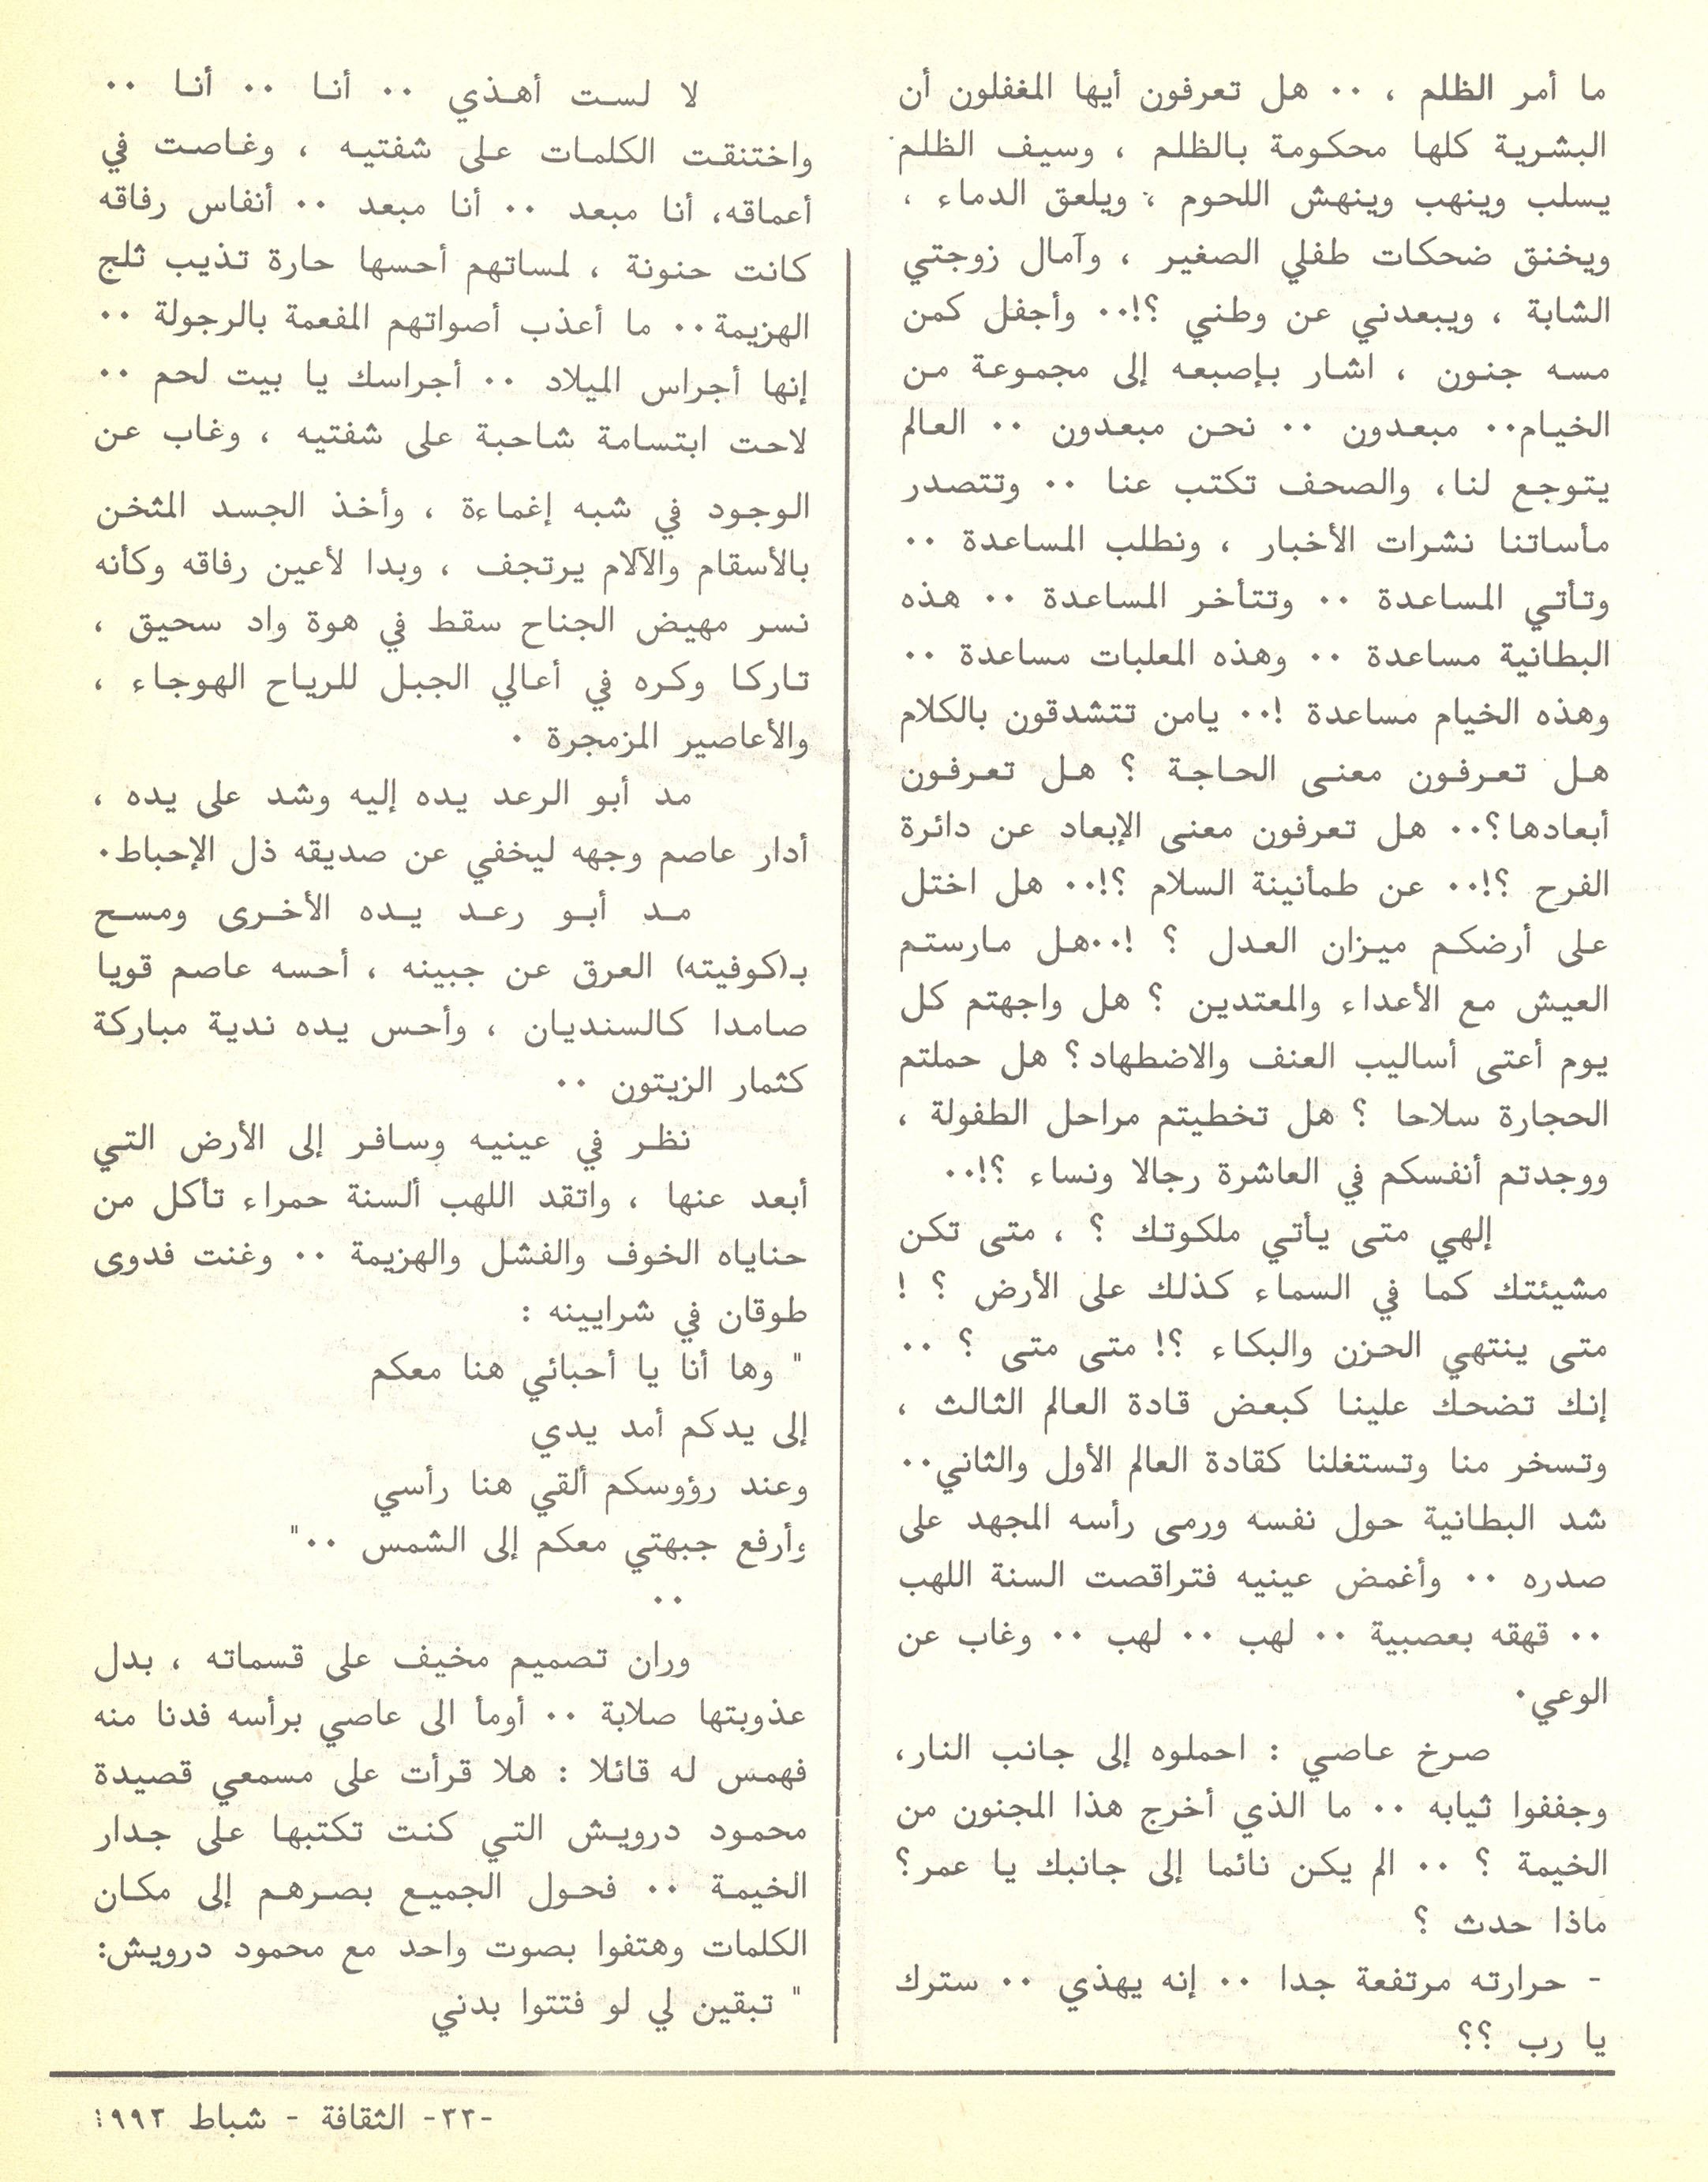 ما أمر الظلم ، ٠٠ هل تعرفون أيها المغفلون أن
البشرية كلها محكومة بالظلم ، وسيف الظلم
يسلب وينهب وينهش اللحوم ، ويلعق الدماء ،
ويخنق ضحكات طفلي الصغير ، وآمال زوجتي
الشابة ، ويبعدني عن وطني ؟!٠٠ وأجفل كمن
مسه جنون ، اشار بإصبعه إلى مجموعة من
الخيام٠٠ مبعدون ٠٠ نحن مبعدون ٠٠ العالم
يتوجع لنا، والصحف تكتب عنا ٠٠ وتتصدر
مأساتنا نشرات الأخبار ، ونطلب المساعدة ٠٠
وتأتي المساعدة ٠٠ وتتأخر المساعدة ٠٠ هذه
البطانية مساعدة ٠٠ وهذه المعلبات مساعدة ٠٠
وهذه الخيام مساعدة !٠٠ يامن تتشدقون بالكلام
هل تعرفون معنى الحاجة ؟ هل تعرفون
أبعادها؟٠٠ هل تعرفون معنى الإبعاد عن دائرة
الفرح ؟!٠٠ عن طمأنينة السلام ؟!٠٠ هل اختل
على أرضكم ميزان العدل ؟ !٠٠هل مارستم
العيش مع الأعداء والمعتدين ؟ هل واجهتم كل
يوم أعتى أساليب العنف والاضطهاد؟ هل حملتم
الحجارة سلاحا ؟ هل تخطيتم مراحل الطفولة ،
ووجدتم أنفسكم في العاشرة رجالا ونساء ؟!٠٠
إلهي متى يأتي ملكوتك ؟ ، متى تكن
مشيئتك كما في السماء كذلك على الأرض ؟ !
متى ينتهي الحزن والبكاء ؟! متى متى ؟ ٠٠
إنك تضحك علينا كبعض قادة العالم الثالث ،
وتسخر منا وتستغلنا كقادة العالم الأول والثاني٠٠
شد البطانية حول نفسه ورمى رأسه المجهد على
صدره ٠٠ وأغمض عينيه فتراقصت السنة اللهب
٠٠ قهقه بعصبية ٠٠ لهب ٠٠ لهب ٠٠ وغاب عن
الوعي٠
صرخ عاصي : احملوه إلى جانب النار،
وجففوا ثيابه ٠٠ ما الذي أخرج هذا المجنون من
الخيمة ؟ ٠٠ الم يكن نائما إلى جانبك يا عمر؟
ماذا حدث ؟
- حرارته مرتفعة جدا ٠٠ إنه يهذي ٠٠ سترك
يا رب ؟؟
لا لست أهذي ٠٠ أنا ٠٠ أنا ٠٠
واختنقت الكلمات على شفتيه ، وغاصت في
أعماقه، أنا مبعد ٠٠ أنا مبعد ٠٠ أنفاس رفاقه
كانت حنونة ، لمساتهم أحسها حارة تذيب ثلج
الهزيمة٠٠ ما أعذب أصواتهم المفعمة بالرجولة ٠٠
إنها أجراس الميلاد ٠٠ أجراسك يا بيت لحم ٠٠
لاحت ابتسامة شاحبة على شفتيه ، وغاب عن
الوجود في شبه إغماءة ، وأخذ الجسد المثخن
بالأسقام والآلام يرتجف ، وبدا لأعين رفاقه وكأنه
نسر مهيض الجناح سقط في هوة واد سحيق ،
تاركا وكره في أعالي الجبل للرياح الهوجاء ،
والأعاصير المزمجرة ٠
مد أبو الرعد يده إليه وشد على يده ،
أدار عاصم وجهه ليخفي عن صديقه ذل الإحباط٠
مد أبو رعد يده الأخرى ومسح
بـ(كوفيته) العرق عن جبينه ، أحسه عاصم قويا
صامدا كالسنديان ، وأحس يده ندية مباركة
كثمار الزيتون ٠٠
نظر في عينيه وسافر إلى الأرض التي
أبعد عنها ، واتقد اللهب ألسنة حمراء تأكل من
حناياه الخوف والفشل والهزيمة ٠٠ وغنت فدوى
طوقان في شرايينه :
" وها أنا يا أحبائي هنا معكم
إلى يدكم أمد يدي
وعند رؤوسكم ألقي هنا رأسي
وأرفع جبهتي معكم إلى الشمس ٠٠"
٠٠
وران تصميم مخيف على قسماته ، بدل
عذوبتها صلابة ٠٠ أومأ الى عاصي برأسه فدنا منه
فهمس له قائلا : هلا قرأت على مسمعي قصيدة
محمود درويش التي كنت تكتبها على جدار
الخيمة ٠٠ فحول الجميع بصرهم إلى مكان
الكلمات وهتفوا بصوت واحد مع محمود درويش:
" تبقين لي لو فتتوا بدني
-٣٣- الثقافة - شباط ١٩٩٣